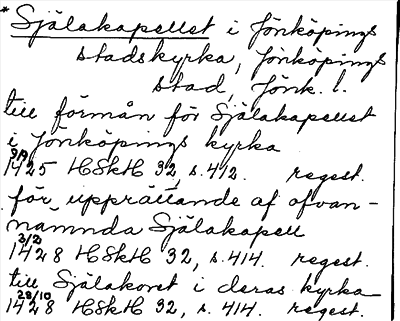 * Själakapellet i Jönköpings
stadskyrka, Jönköpings
stad, Jönk. l.
till förmån för Själakapellet
i Jönköpings kyrka
1425 HSkH 32, s. 412. regest.
för upprättande af ofvan-
nämnda Själakapell
3/2
1428 HSkH 32, s. 414. regest.
till Själakoret i deras kyrka
28/10
1428 HSkH 32, s. 414. regest.